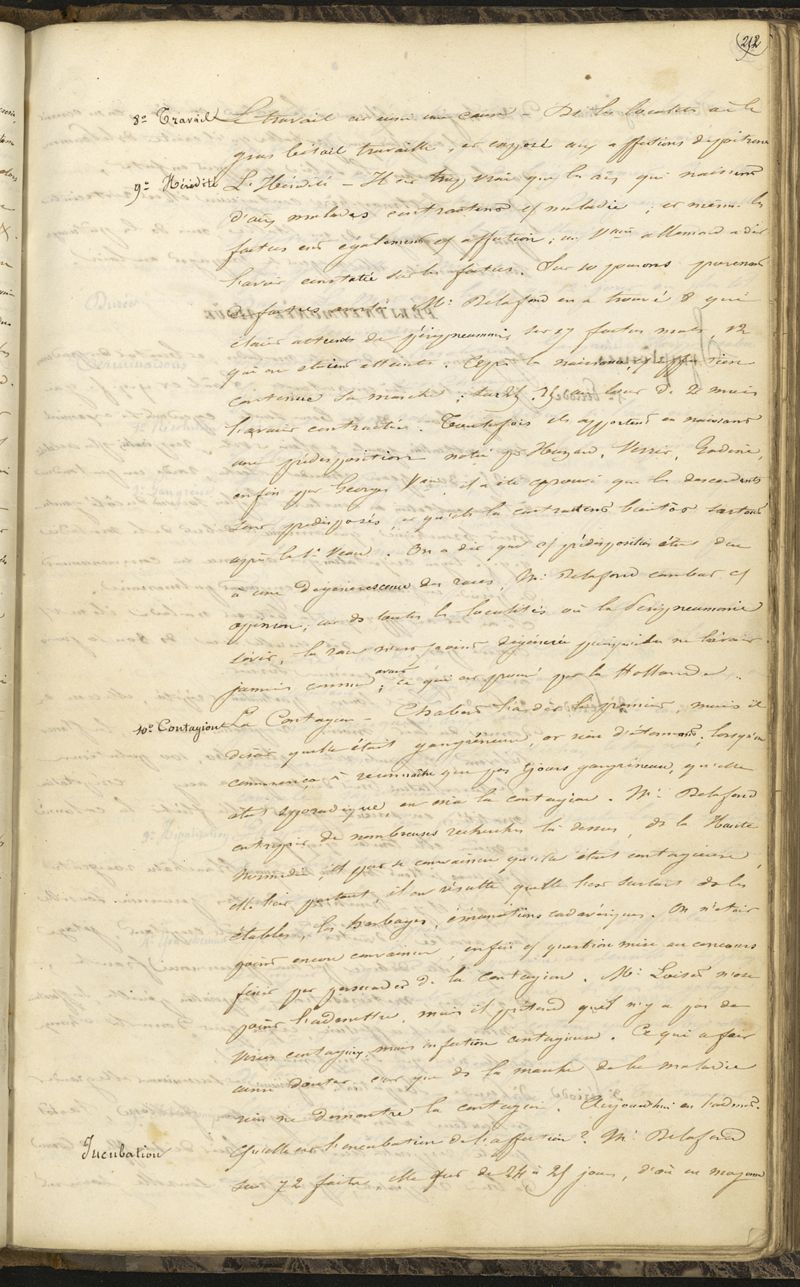 212
8º Travail Le travail est aussi une cause – Ds les localités où le
gros bétail travaille, est exposé aux affections de poitrine
9º Hérédité L'Hérédité – Il est trop vrai que les qui naissent
maladies contractent cf maladie ; et même les
foetus ont également cf affection ; un allemand a dit
l'avoir constatée sur les foetus. Sur 10 poumons provenant
de foetus Mr Delafond en a trouvé 8 qui
étaient atteints de péripneumonie, sur 17 foetus morts, 12
qui en étaient atteints. Après la naissance, cf affection
continue sa marche ; au bout de 2 mois
l'avoir contractée. Toutefois ils apportent en naissant
une prédisposition notée par Huzard, Verrier, Godine,
enfin par George il a été éprouvé que les descendants
sont prédisposés, et qu'ils la contractent bientôt surtout
après le 1er Veau. On a dit que cf prédisposition était due
à une dégénérescence des races, Mr Delafond combat cf
opinion, car ds toutes les localités où la Péripneumonie
sévit, la race n'est point dégénérée puisqu'elle ne l'avait
jamais connue avant, ce qui est prouvé par la Hollande.
10º Contagion La Contagion – Chabert l'a dit le premier, mais il
disait qu'elle était gangréneuse, or rien d'étonnant, lorsqu'on
commença à reconnaître que pas tjours gangréneuse, qu'elle
était sporadique, on nia la contagion. Mr Delafond
entreprit de nombreuses recherches là dessus, ds la Haute
Normandie, et put se convaincre qu'elle était contagieuse,
elle l'est partout, il en résulte qu'elle l'est surtout ds les
étables, les herbages, émanations cadavériques. On n'était
point encore convaincu, enfin cf question mise au concours
finit par persuader de la contagion. Mr Loiset n'ose
point l'admettre, mais il prétend qu'il n'y a pas de
virus contagieux, mais infection contagieuse. Ce qui a fait
aussi douter, c'est que ds la marche de la maladie
rien ne démontre la contagion. Aujourd'hui on l'admet.
Incubation Quelle est l'incubation de l'affection ? Mr Delafond
sur 72 faits, elle fut de 24 à 25 jours, d'où en moyenne